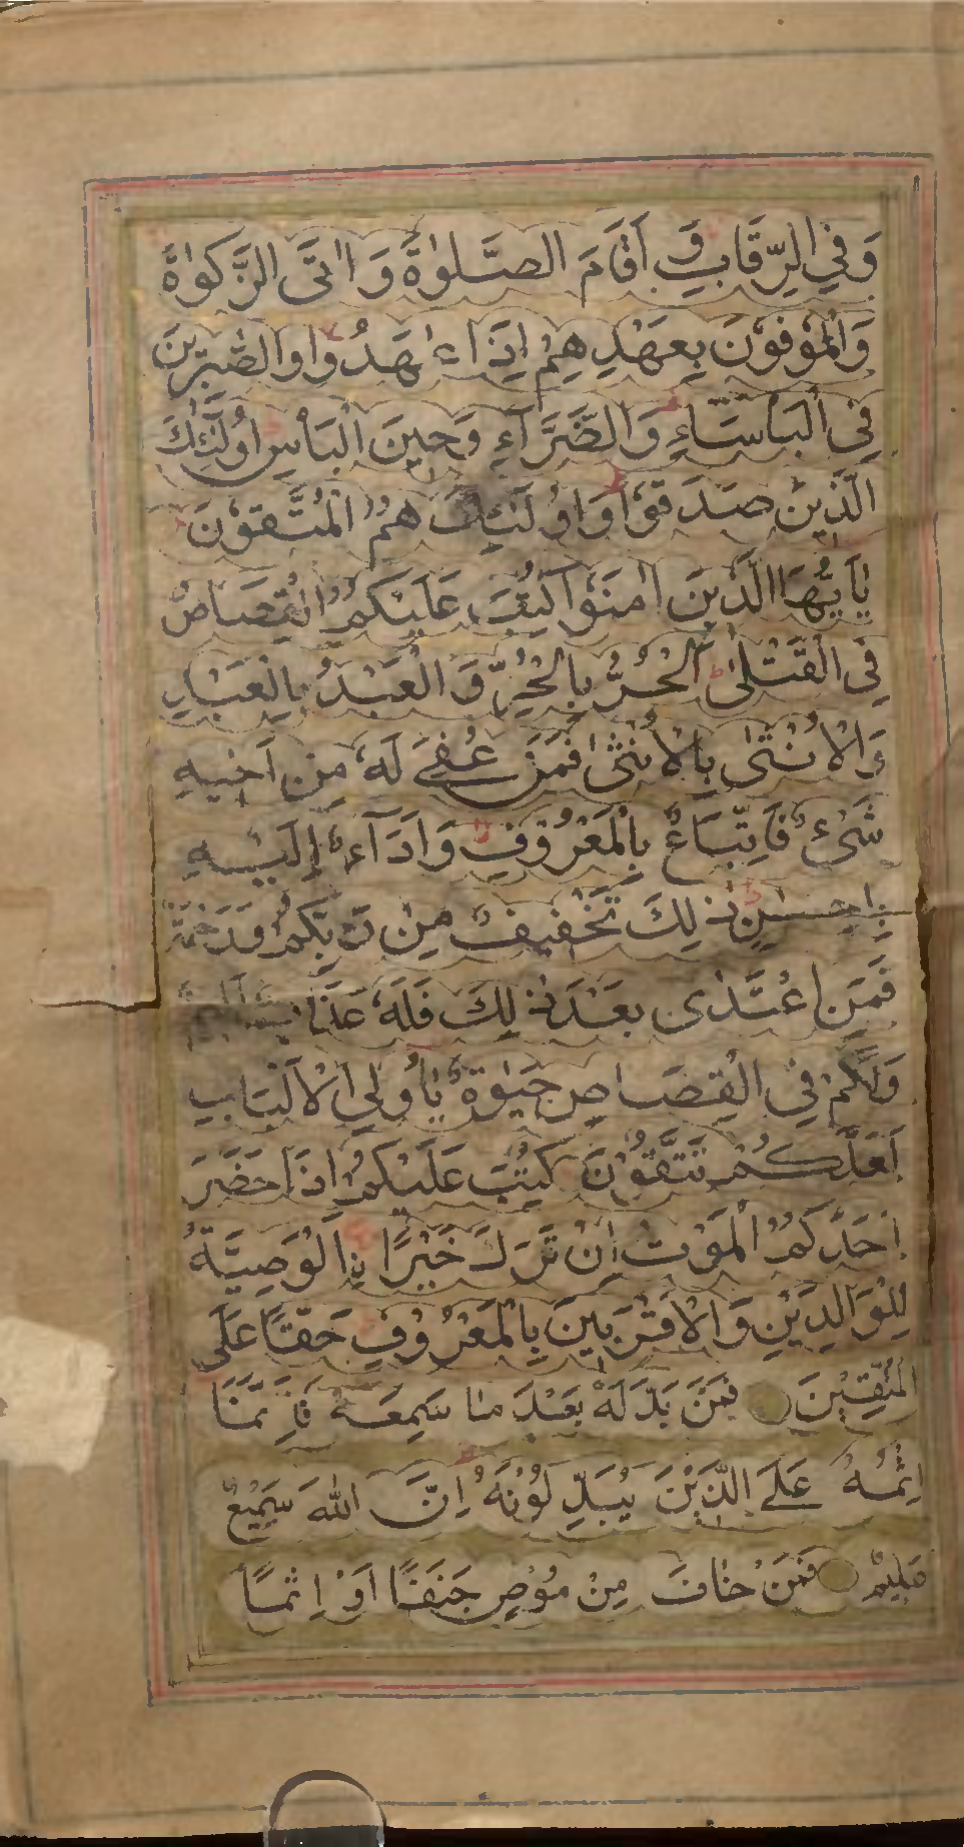 وَفِي الرِّقَابِ وَ اَقَامَ الصَّلٰوةَ وَ اٰتَى الزَّكٰوةَ
وَالْمُوْفُوْنَ بِعَهْدِهِمْ اِذَا عٰهَدُوْا وَالصّٰبِرِيْنَ
فِي الْبَأْسَآءِ وَالضَّرَّآءِ وَحِيْنَ الْبَأْسِ اُولٰٓئِكَ
الَّذِيْنَ صَدَقُوْا وَاُولٰٓئِكَ هُمُ الْمُتَّقُوْنَ
يٰٓاَيُّهَا الَّذِيْنَ اٰمَنُوْا كُتِبَ عَلَيْكُمُ الْقِصَاصُ
فِي الْقَتْلٰى اَلْحُرُّ بِالْحُرِّ وَ الْعَبْدُ بِالْعَبْدِ
وَالْاُنْثٰى بِالْاُنْثٰى فَمَنْ عُفِيَ لَهٗ مِنْ اَخِيْهِ
شَيْءٌ فَاتِّبَاعٌ بِالْمَعْرُوْفِ وَاَدَآءٌ اِلَيْهِ
بِاِحْسَانٍ ذٰلِكَ تَخْفِيْفٌ مِنْ رَّبِّكُمْ وَرَحْمَةٌ
فَمَنِ اعْتَدٰى بَعْدَ ذٰلِكَ فَلَهٗ عَذَابٌ اَلِيْمٌ
وَلَكُمْ فِي الْقِصَاصِ حَيٰوةٌ يٰٓاُولِي الْاَلْبَابِ
لَعَلَّكُمْ تَتَّقُوْنَ كُتِبَ عَلَيْكُمْ اِذَا حَضَرَ
اَحَدَكُمُ الْمَوْتُ اِنْ تَرَكَ خَيْرًا نِ الْوَصِيَّةُ
لِلْوَالِدَيْنِ وَالْاَقْرَبِيْنَ بِالْمَعْرُوْفِ حَقًّا عَلَى
الْمُتَّقِيْنَ فَمَنْ بَدَّلَهٗ بَعْدَ مَا سَمِعَهٗ فَاِنَّمَا
اِثْمُهٗ عَلَى الَّذِيْنَ يُبَدِّلُوْنَهٗ اِنَّ اللّٰهَ سَمِيْعٌ
عَلِيْمٌ فَمَنْ خَافَ مِنْ مُوْصٍ جَنَفًا اَوْ اِثْمًا